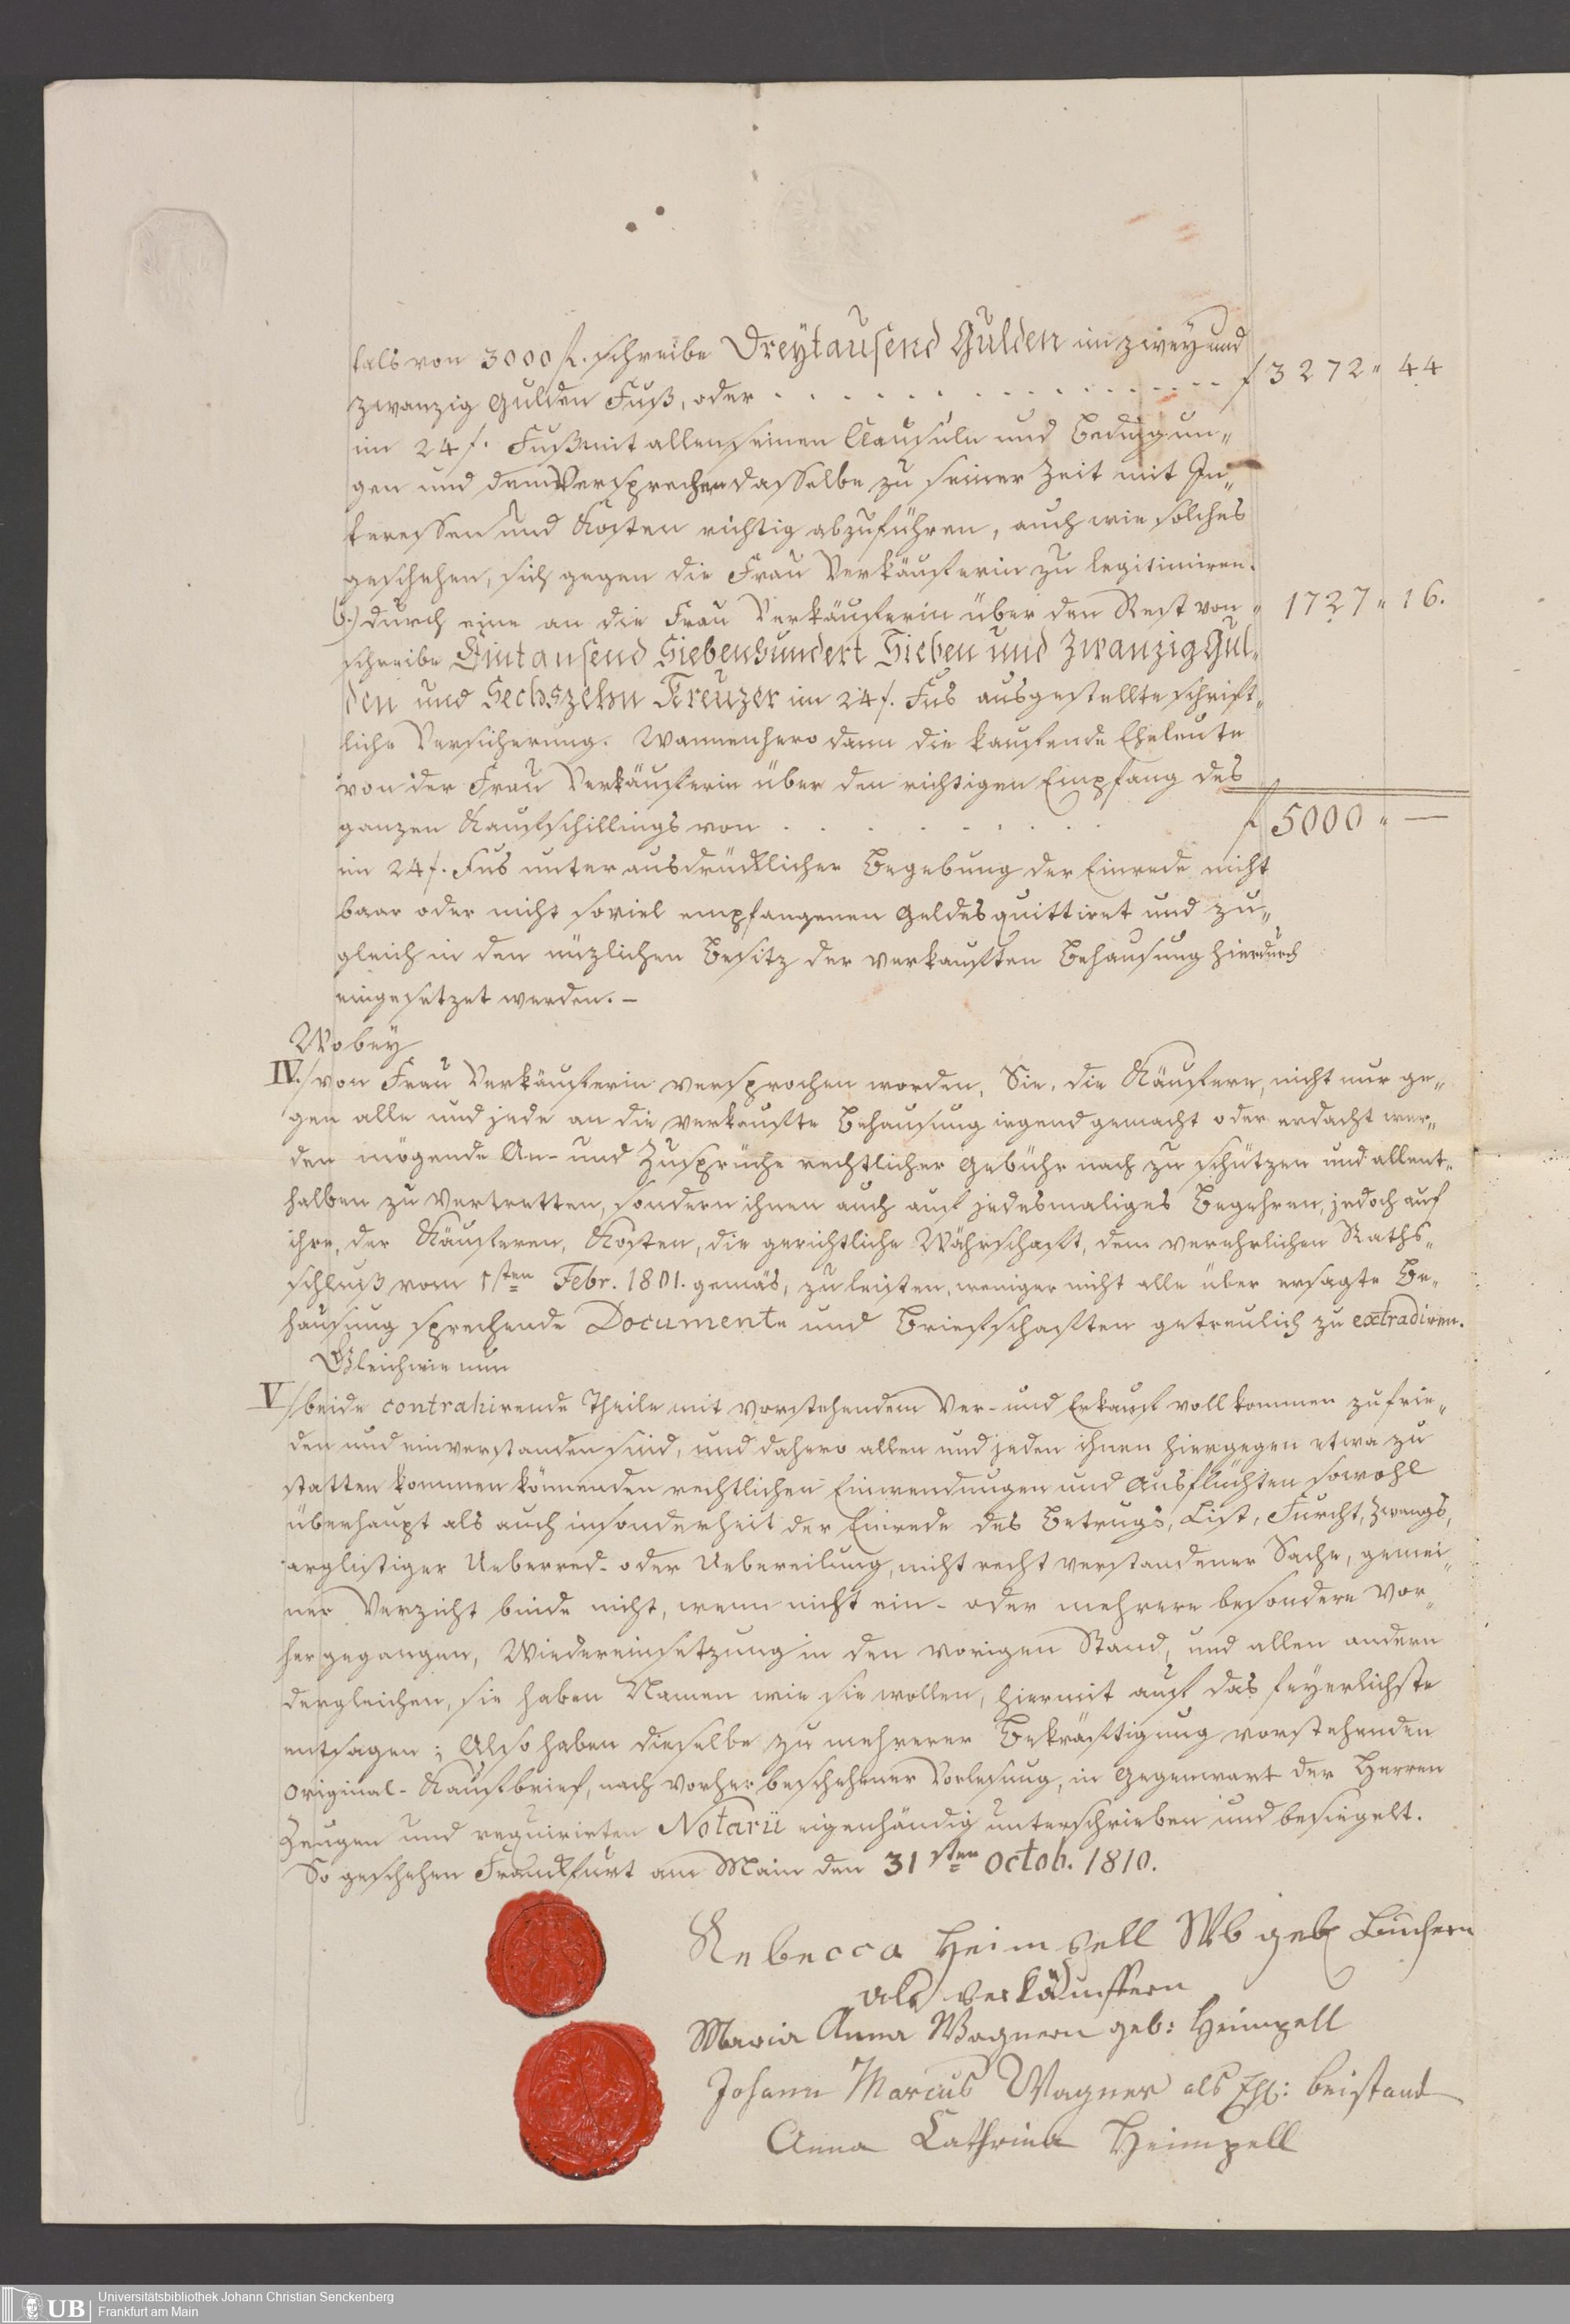 tals von 3000 f. schreibe Dreytausend Gulden im zwey und
zwanzig Gulden Fuß, oder . . . . . . . . . . . . f 3272 " 44
im 24 f. Fuß mit allen seinen Clausuln und Bedingun„
gen und dem Versprechen dasselbe zu seiner Zeit mit In„
teressen und Kosten richtig abzuführen, auch wie solches
geschehen, sich gegen die Frau Verkäuferin zu legitimiren.
b.) durch eine an die Frau Verkäuferin über den Rest von " 1727 " 16.
schreibe Eintausend Siebenhundert Sieben und Zwanzig Gul„
den und Sechszehn Kreuzer im 24 f. Fus ausgestellte schrift„
liche Versicherung. Wannenhero dann die kaufende Eheleute
von der Frau Verkäuferin über den richtigen Empfang des
ganzen Kaufschillings von . . . . . . . . f 5000 " —
im 24 f. Fus unter ausdrücklicher Begebung der Einrede nicht
baar oder nicht soviel empfangenen Geldes quittiret und zu„
gleich in den nüzlichen Besitz der verkauften Behausung hierdurch
eingesetzet werden. –
Wobey
IV./ von Frau Verkäuferin versprochen worden, Sie, die Käufere, nicht nur ge„
gen alle und jede an die verkaufte Behausung irgend gemacht oder erdacht wer„
den mögende An- und Zusprüche rechtlicher Gebühr nach zu schützen und allent„
halben zu vertretten, sondern ihnen auch auf jedesmaliges Begehren, jedoch auf
ihre, der Käuferen, Kosten, die gerichtliche Währschaft, dem verehrlichen Raths„
schluß vom 1sten Febr. 1801. gemäs, zu leisten, weniger nicht alle über ersagte Be„
hausung sprechende Documente und Briefschaften getreulich zu extradiren.
Gleichwie nun
V./ beide contrahirende Theile mit vorstehendem Ver- und Erkauf vollkommen zufrie„
den und einverstanden sind, und dahero allen und jeden ihnen hiergegen etwa zu
statten kommen könnenden rechtlichen Einwendungen und Ausflüchten sowohl
überhaupt als auch insonderheit der Einrede des Betrugs, List, Furcht, Zwangs,
arglistiger Ueberred- oder Uebereilung, nicht recht verstandener Sache, gemei„
ner Verzicht binde nicht, wenn nicht ein- oder mehrere besondere vor„
hergegangen, Wiedereinsetzung in den vorigen Stand, und allen andern
dergleichen, sie haben Namen wie sie wollen, hiermit auf das feyerlichste
entsagen; Also haben dieselbe zu mehrerer Bekräftigung vorstehenden
Original-Kaufbrief, nach vorher beschehener Vorlesung, in Gegenwart der Herren
Zeugen und requirirten Notarii eigenhändig unterschrieben und besiegelt.
So geschehen Franckfurt am Main den 31sten Octob. 1810.
Rebecca Heimpell Wb geb
als verkäufern
Maria Anna Wagnern geb: Heimpell
Johann Marcus Wagner als Ehl: beistand
Anna Cathrina Heimpell
UB
Universitätsbibliothek Johann Christian Senckenberg
Frankfurt am Main